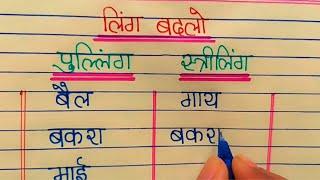 लिंग बदलो
पुल्लिंग स्त्रीलिंग
बैल गाय
बकरा बकर
भाई